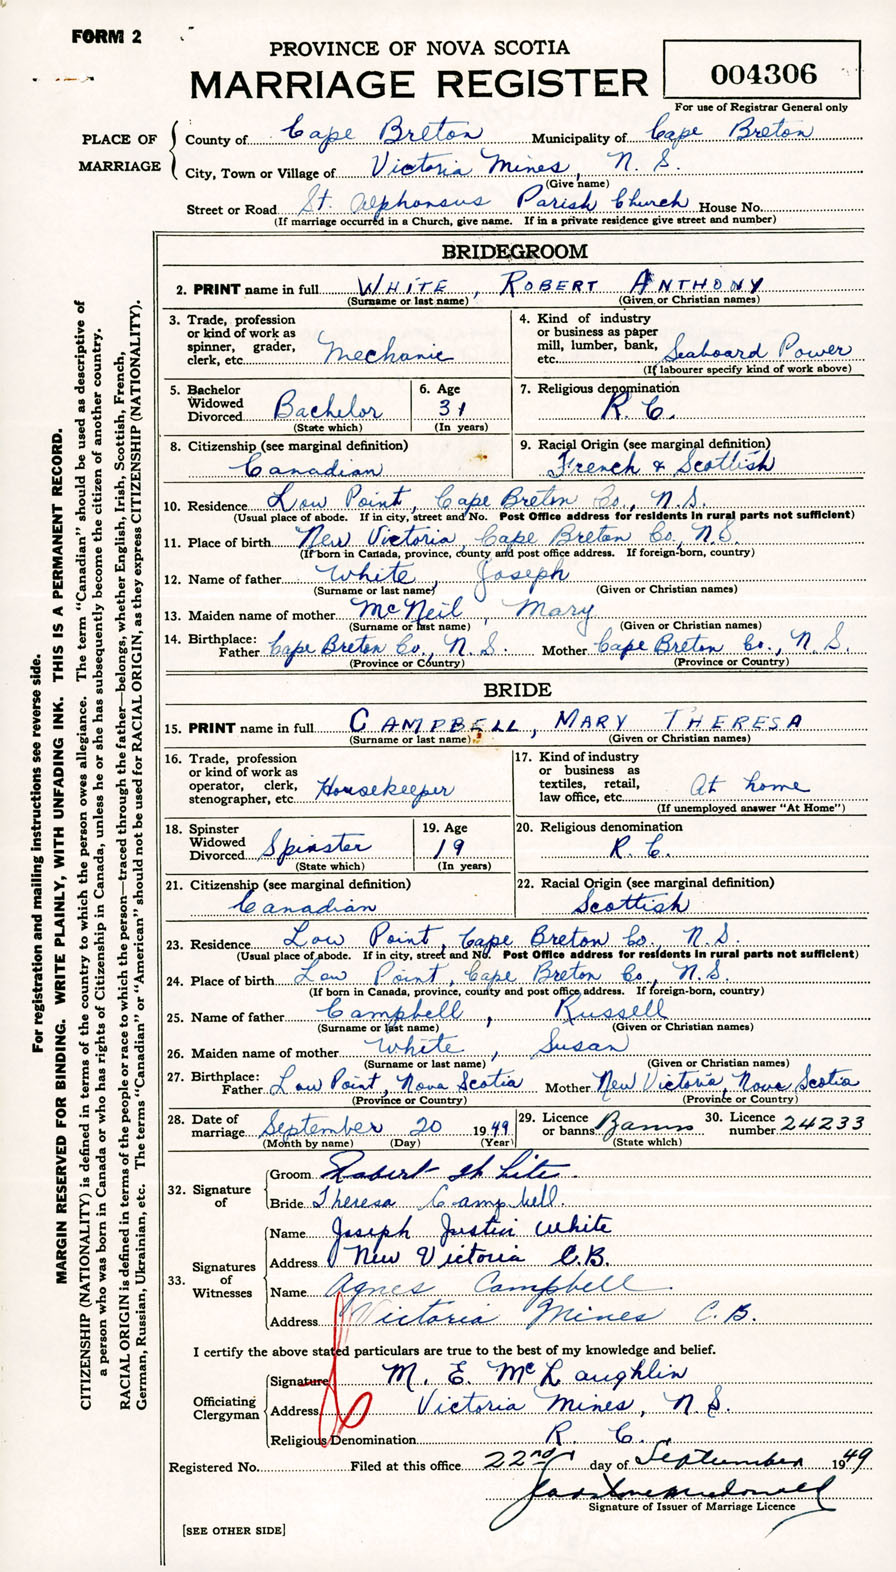 FORM 2
PROVINCE OF NOVA SCOTIA
MARRIAGE REGISTER
004306
For use of Registrar General only
PLACE OF MARRIAGE
County of Cape Breton Municipality of Cape Breton
City, Town or Village of Victoria Mines, N. S.
(Give name)
Street or Road St. Alphonsus Parish Church House No.
(If marriage occurred in a Church, give name. If in a private residence give street and number)
BRIDEGROOM
2. PRINT name in full WHITE, ROBERT ANTHONY
(Surname or last name) (Given or Christian names)
3. Trade, profession or kind of work as spinner, grader, clerk, etc. Mechanic
4. Kind of industry or business as paper mill, lumber, bank, etc. Seaboard Power
(If labourer specify kind of work above)
5. Bachelor Widowed Divorced Bachelor
(State which)
6. Age 31
(In years)
7. Religious denomination
R. C.
8. Citizenship (see marginal definition)
Canadian
9. Racial Origin (see marginal definition)
French & Scottish
10. Residence Low Point, Cape Breton Co., N.S.
(Usual place of abode. If in city, street and No. Post Office address for residents in rural parts not sufficient)
11. Place of birth New Victoria, Cape Breton Co., N.S.
(If born in Canada, province, county and post office address. If foreign-born, country)
12. Name of father White, Joseph
(Surname or last name) (Given or Christian names)
13. Maiden name of mother McNeil, Mary
(Surname or last name) (Given or Christian names)
14. Birthplace: Father Cape Breton Co., N. S. Mother Cape Breton Co., N. S.
(Province or Country) (Province or Country)
BRIDE
15. PRINT name in full CAMPBELL, MARY THERESA
(Surname or last name) (Given or Christian names)
16. Trade, profession or kind of work as operator, clerk, stenographer, etc. Housekeeper
17. Kind of industry or business as textiles, retail, law office, etc. At home
(If unemployed answer "At Home")
18. Spinster Widowed Divorced Spinster
(State which)
19. Age 19
(In years)
20. Religious denomination
R. C.
21. Citizenship (see marginal definition)
Canadian
22. Racial Origin (see marginal definition)
Scottish
23. Residence Low Point, Cape Breton Co., N. S.
(Usual place of abode. If in city, street and No. Post Office address for residents in rural parts not sufficient)
24. Place of birth Low Point, Cape Breton Co., N. S.
(If born in Canada, province, county and post office address. If foreign-born, country)
25. Name of father Campbell, Russell
(Surname or last name) (Given or Christian names)
26. Maiden name of mother White, Susan
(Surname or last name) (Given or Christian names)
27. Birthplace: Father Low Point, Nova Scotia Mother New Victoria, Nova Scotia
(Province or Country) (Province or Country)
28. Date of marriage September 20 1949
(Month by name) (Day) (Year)
29. Licence or banns Banns
(State which)
30. Licence number 24233
32. Signature of
Groom Robert White
Bride Theresa Campbell
33. Signatures of Witnesses
Name Joseph Justin White
Address New Victoria C.B.
Name Agnes Campbell
Address Victoria Mines C. B.
I certify the above stated particulars are true to the best of my knowledge and belief.
Officiating Clergyman
Signature M. E. McLaughlin
Address Victoria Mines, N. S.
Religious Denomination R. C.
Registered No. Filed at this office 22nd day of September 1949
Signature of Issuer of Marriage Licence
[SEE OTHER SIDE]
For registration and mailing instructions see reverse side.
MARGIN RESERVED FOR BINDING. WRITE PLAINLY, WITH UNFADING INK. THIS IS A PERMANENT RECORD.
CITIZENSHIP (NATIONALITY) is defined in terms of the country to which the person owes allegiance. The term "Canadian" should be used as descriptive of
a person who was born in Canada or who has rights of Citizenship in Canada, unless he or she has subsequently become the citizen of another country.
RACIAL ORIGIN is defined in terms of the people or race to which the person—traced through the father—belongs, whether English, Irish, Scottish, French,
German, Russian, Ukrainian, etc. The terms "Canadian" or "American" should not be used for RACIAL ORIGIN, as they express CITIZENSHIP (NATIONALITY).